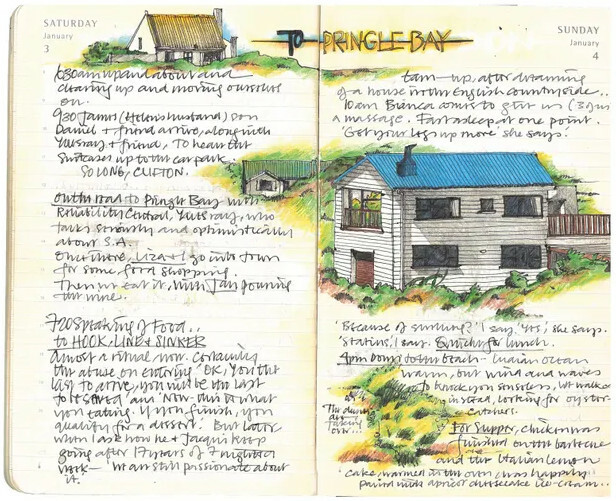 SATURDAY
January
3
TO PRINGLE BAY
SUNDAY
January
4
6:30am up and about and
clearing up and moving ourselves
on.
930 James (Helen's husband) son
Daniel + friend arrive, along with
+ friend, to heave the
suitcases up to the car park.
SO LONG, CLIFTON.
on the road to Pringle Bay with
Reliability Central, who
talks seriously and optimistically
about S.A.
Once there, Liza + I go into town
for some food shopping.
Then we eat it, with Jan pouring
the wine.
720 Speaking of Food..
to HOOK, LINE & SINKER
almost a ritual now. Containing
the abuse on entering 'OK, you the
last to arrive, you will be the last
to be served' and 'Now this is what
you eating. If you finish, you
qualify for a dessert'. But later
when I ask how he + Jacqui keep
going after 17 years of 7 nights a
week— 'We are still passionate about
it.'
6am—up, after dreaming
of a house in the English countryside..
10am Bianca comes to give us (3 of us)
a massage. Fast asleep at one point.
'Get your legs up more' she says.
'Because of surfing?' I say. 'Yes', she says.
'Statins', I say. for lunch.
4pm Down to the beach— Indian Ocean
warm, but wind and waves
to knock you senseless, we walk
instead, looking for oyster-
catchers.
The dunes
are
taking
over...
For Supper, chicken was
finished on the barbecue
and the Italian lemon
cake, warmed in the oven was happily
paired with apricot cheesecake ice-cream..